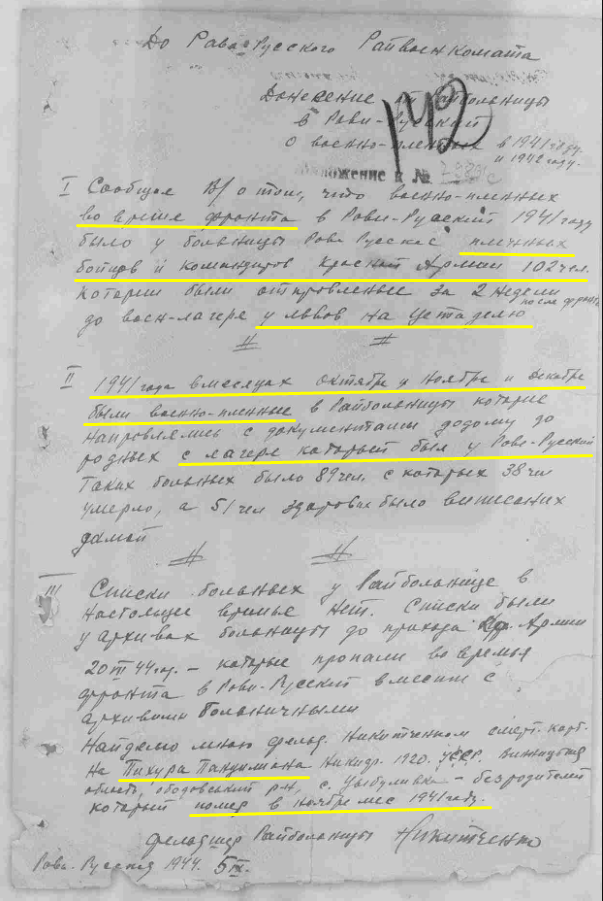 До Рава-Русского Райвоенкомата
Донесение от Райбольницы
в Рови-Русской
о военно-пленных в 1941 году
и 1942 году.
142
Приложение к №
I Сообщаю о том, что военно-пленных
во время фронта в Рови-Руский 1941 году
было у больницы Рова Русская пленных
бойцов и командиров красной Армии 102 чел.
которые были отправленые за 2 недели
после фронта
до воен-лагере у Львов на Цетаделю
#  #
II 1941 года в месяцах октябре у ноябре и декабре
были военно-пленные в Райбольницы которые
направлялись с документами додому до
родных с лагере который был у Рово-Русский
Таких больных было 89 чел. с которых 38 чел
умерло, а 51 чел здоровых было виписаних
дамой
#  #
III Списки больных у Райбольнице в
настояще время нет. Списки были
у архивах больницы до прихода Кр. Армии
20 VII 44 г. – которые пропали во время
фронта в Рови-Русский вместе с
архивими больничными
Найдено мною фельд. Никитченком смерт. карт.
на Пихура Пандимона Никидр. 1920. УССР. Винницкая
область, ободовский р-н, с. Цыбуливка – без родителей
который помер в ноябре мес 1941 году.
фельдшер Райбольницы Никитченко
Рова-Русская 1944. 5 IX.